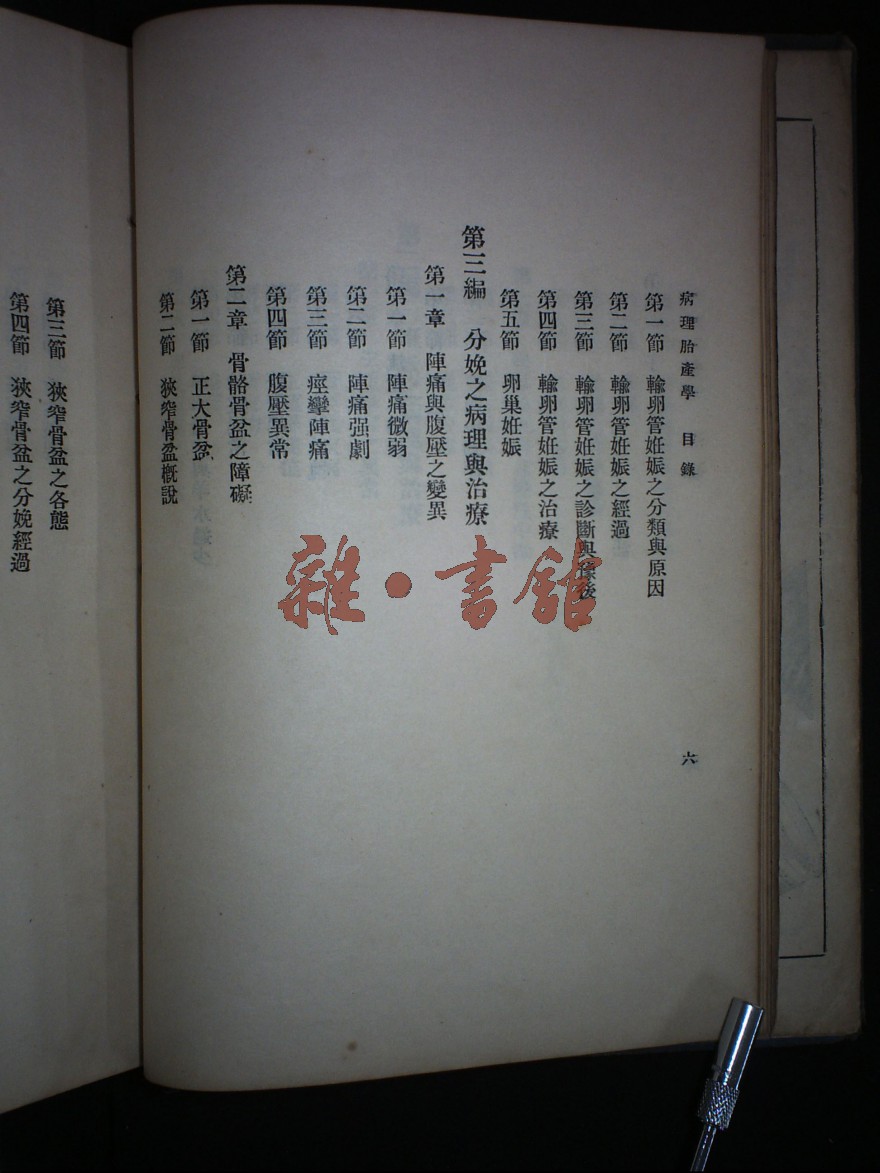 病理胎產學 目錄
六
第一節 輸卵管姙娠之分類與原因
第二節 輸卵管姙娠之經過
第三節 輸卵管姙娠之診斷與豫後
第四節 輸卵管姙娠之治療
第五節 卵巢姙娠
第三編 分娩之病理與治療
第一章 陣痛與腹壓之變異
第一節 陣痛微弱
第二節 陣痛强劇
第三節 痙攣陣痛
第四節 腹壓異常
第二章 骨骼骨盆之障礙
第一節 正大骨盆
第二節 狹窄骨盆槪說
第三節 狹窄骨盆之各態
第四節 狹窄骨盆之分娩經過
雜·書館